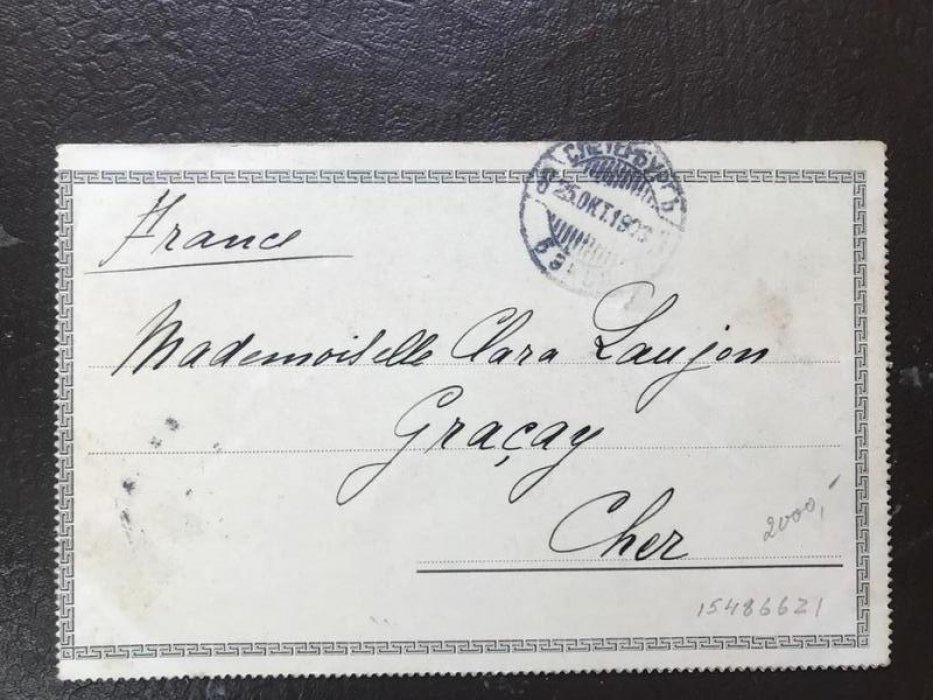 С.ПЕТЕРБУРГЪ
25.ОКТ.19
France
Mademoiselle Clara Laujon
Graçay
Cher
2000,
15486621